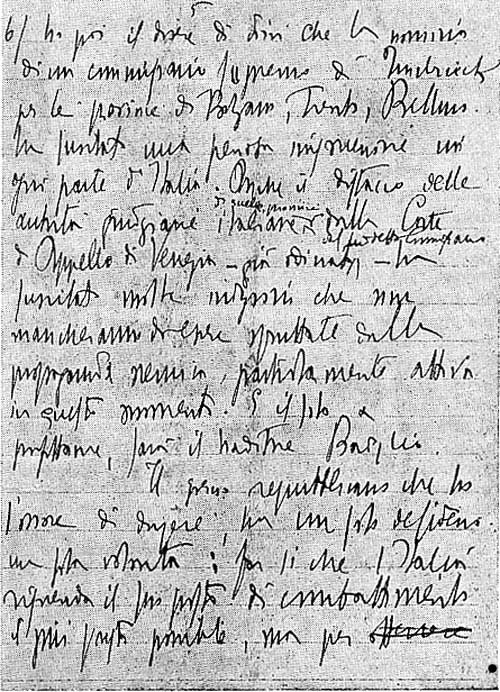 5
6/ ho poi il dovere di dirvi che la nomina
di un commissario supremo di Innsbruck
per le province di Bolzano, Trento, Belluno.
ha suscitato una penosa impressione in
ogni parte d'Italia. Anche il distacco delle
di quelle province
autorità giudiziarie italiane dalla Corte
dal suddetto commissario
d'Appello di Venezia — già ordinato — ha
suscitato molte che non
mancheranno di essere sfruttate dalla
propaganda nemica, particolarmente attiva
in questo momento. E il solo a
, sarà il traditore Badoglio.
Il governo repubblicano che ho
l'onore di dirigere, ha un solo desiderio
una sola volontà: far sì che l'Italia
riprenda il suo posto di combattimento
il più presto possibile, ma per